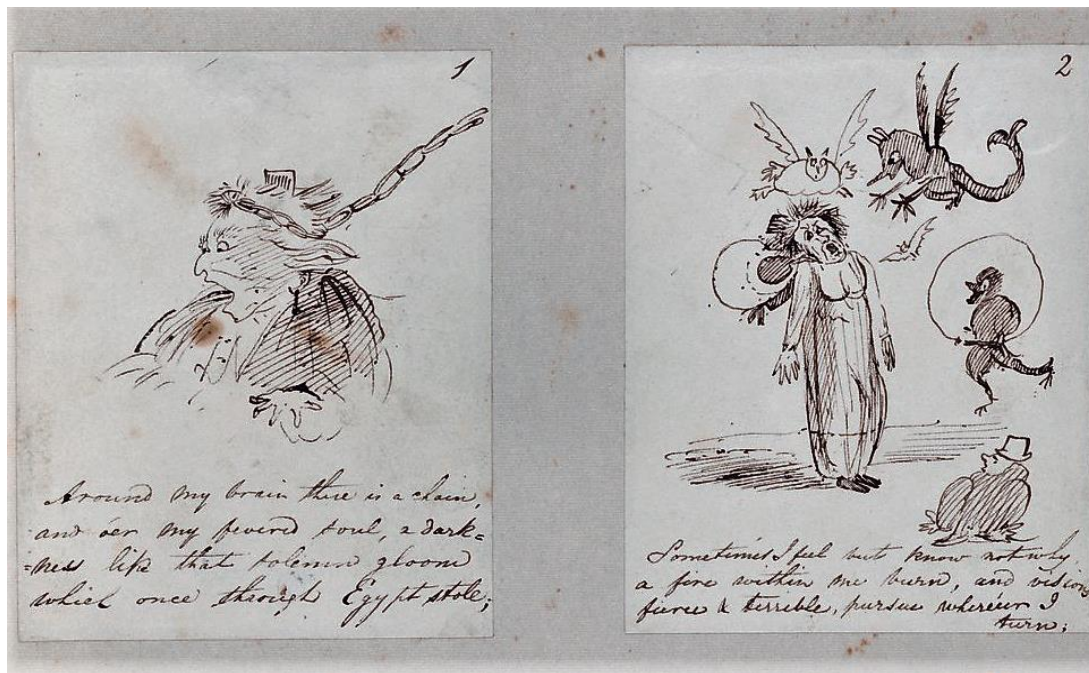 1
Around my brain there is a chain,
and óer my fevered soul, a dark=
=ness like that solemn gloom
which once through Egypt stole;
2
Sometimes I feel but know not why
a fire within me burn, and visions
fierce & terrible, pursue where'er I
turn;